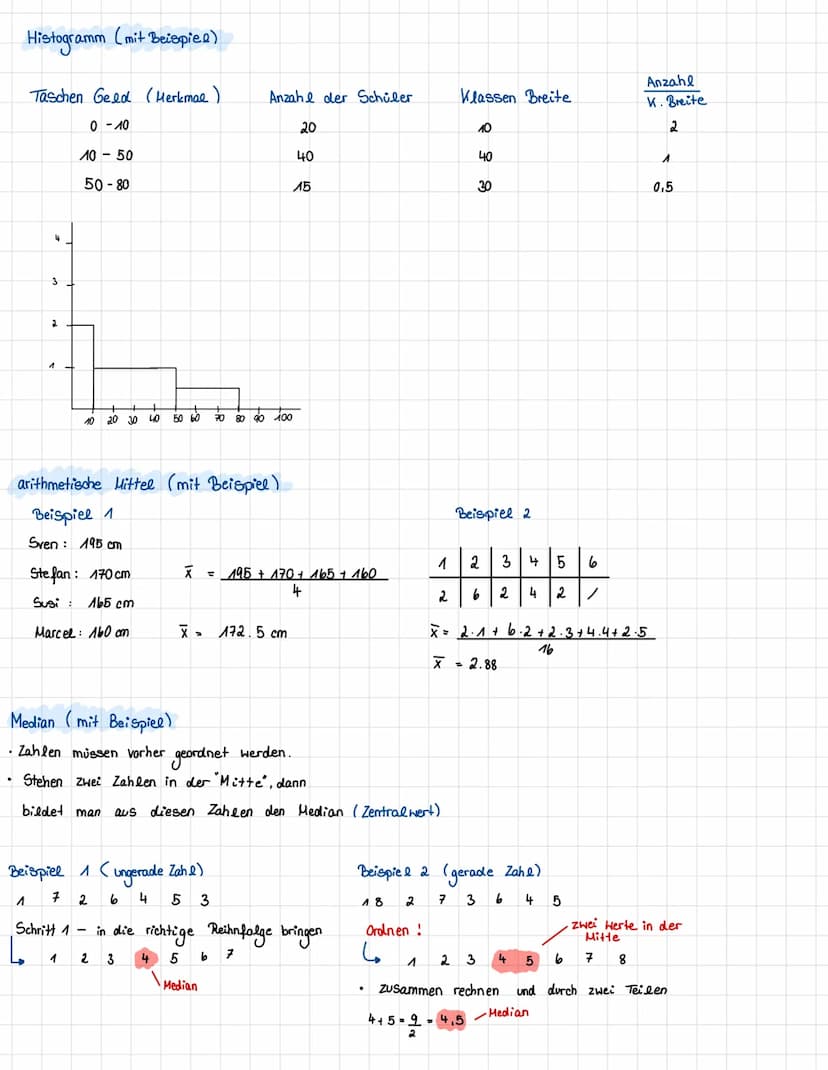 Histogramm (mit Beispiel)
Taschen Geld (Merkmal) Anzahl der Schüler Klassen Breite Anzahl / K. Breite
0 - 10 20 10 2
10 - 50 40 40 1
50 - 80 15 30 0,5
4
3
2
1
10 20 30 40 50 60 70 80 90 100
arithmetische Mittel (mit Beispiel)
Beispiel 1
Sven : 195 cm
Stefan : 170 cm
Susi : 165 cm
Marcel : 160 cm
x̄ = (195 + 170 + 165 + 160) / 4
x̄ = 172.5 cm
Beispiel 2
1 2 3 4 5 6
2 6 2 4 2 /
x̄ = (2·1 + 6·2 + 2·3 + 4·4 + 2·5) / 16
x̄ = 2.88
Median (mit Beispiel)
· Zahlen müssen vorher geordnet werden.
· Stehen zwei Zahlen in der "Mitte", dann
bildet man aus diesen Zahlen den Median (Zentralwert)
Beispiel 1 (ungerade Zahl)
1 7 2 6 4 5 3
Schritt 1 – in die richtige Reihnfolge bringen
1 2 3 4 5 6 7
Median
Beispiel 2 (gerade Zahl)
1 8 2 7 3 6 4 5
Ordnen !
zwei Werte in der
Mitte
1 2 3 4 5 6 7 8
· zusammen rechnen und durch zwei Teilen
4 + 5 = 9/2 = 4,5
Median